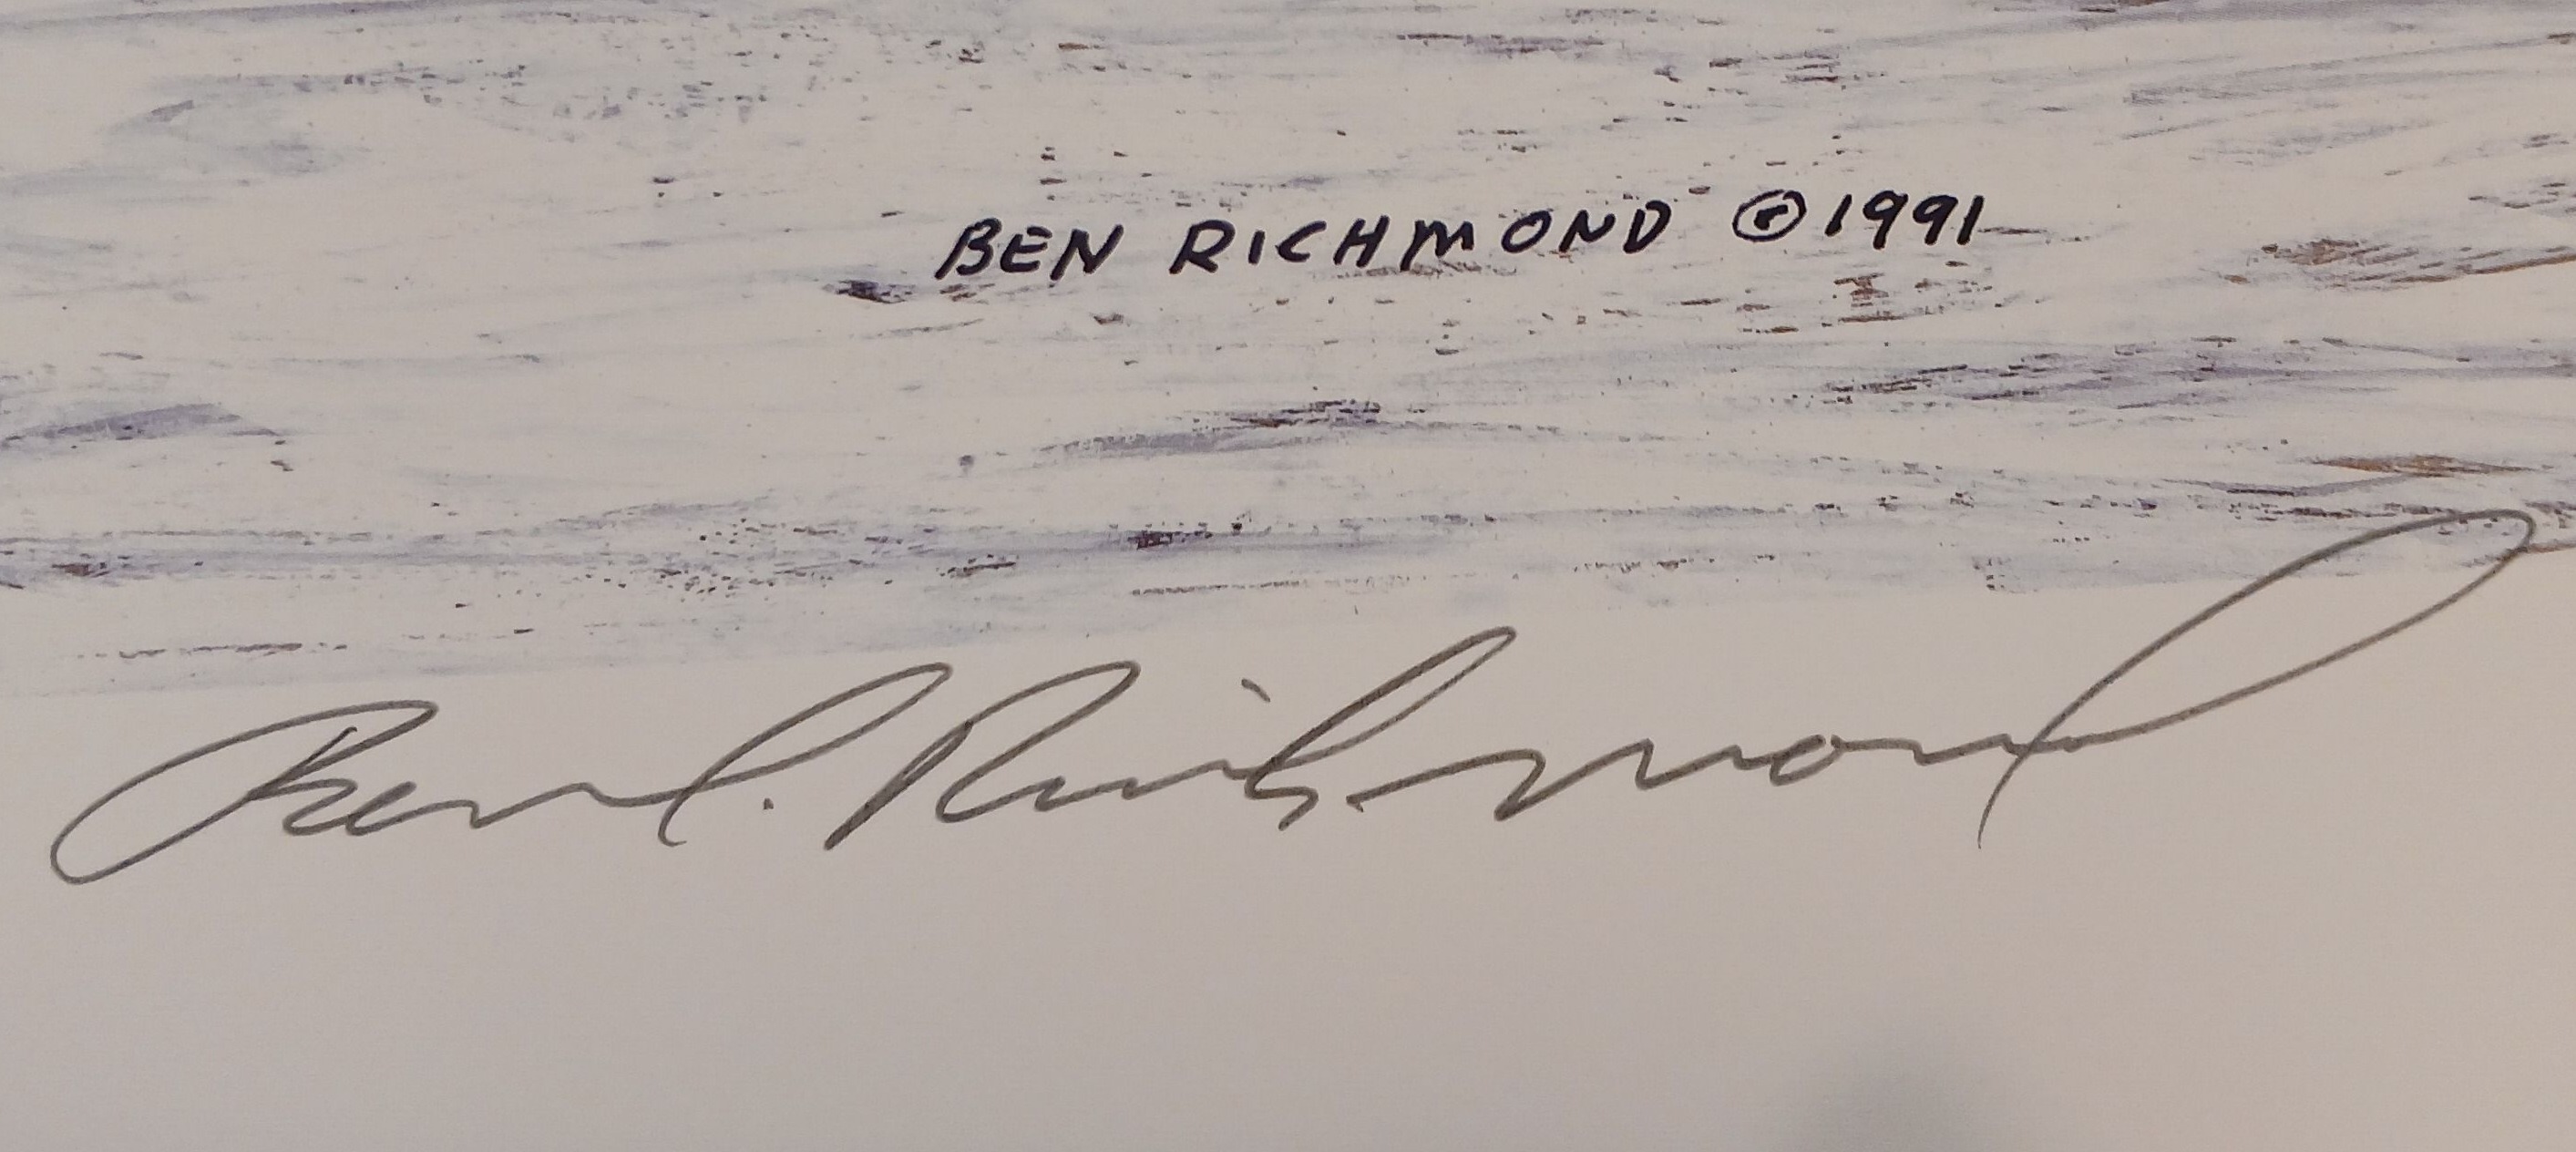 BEN RICHMOND ©1991
Ben J. Richmond